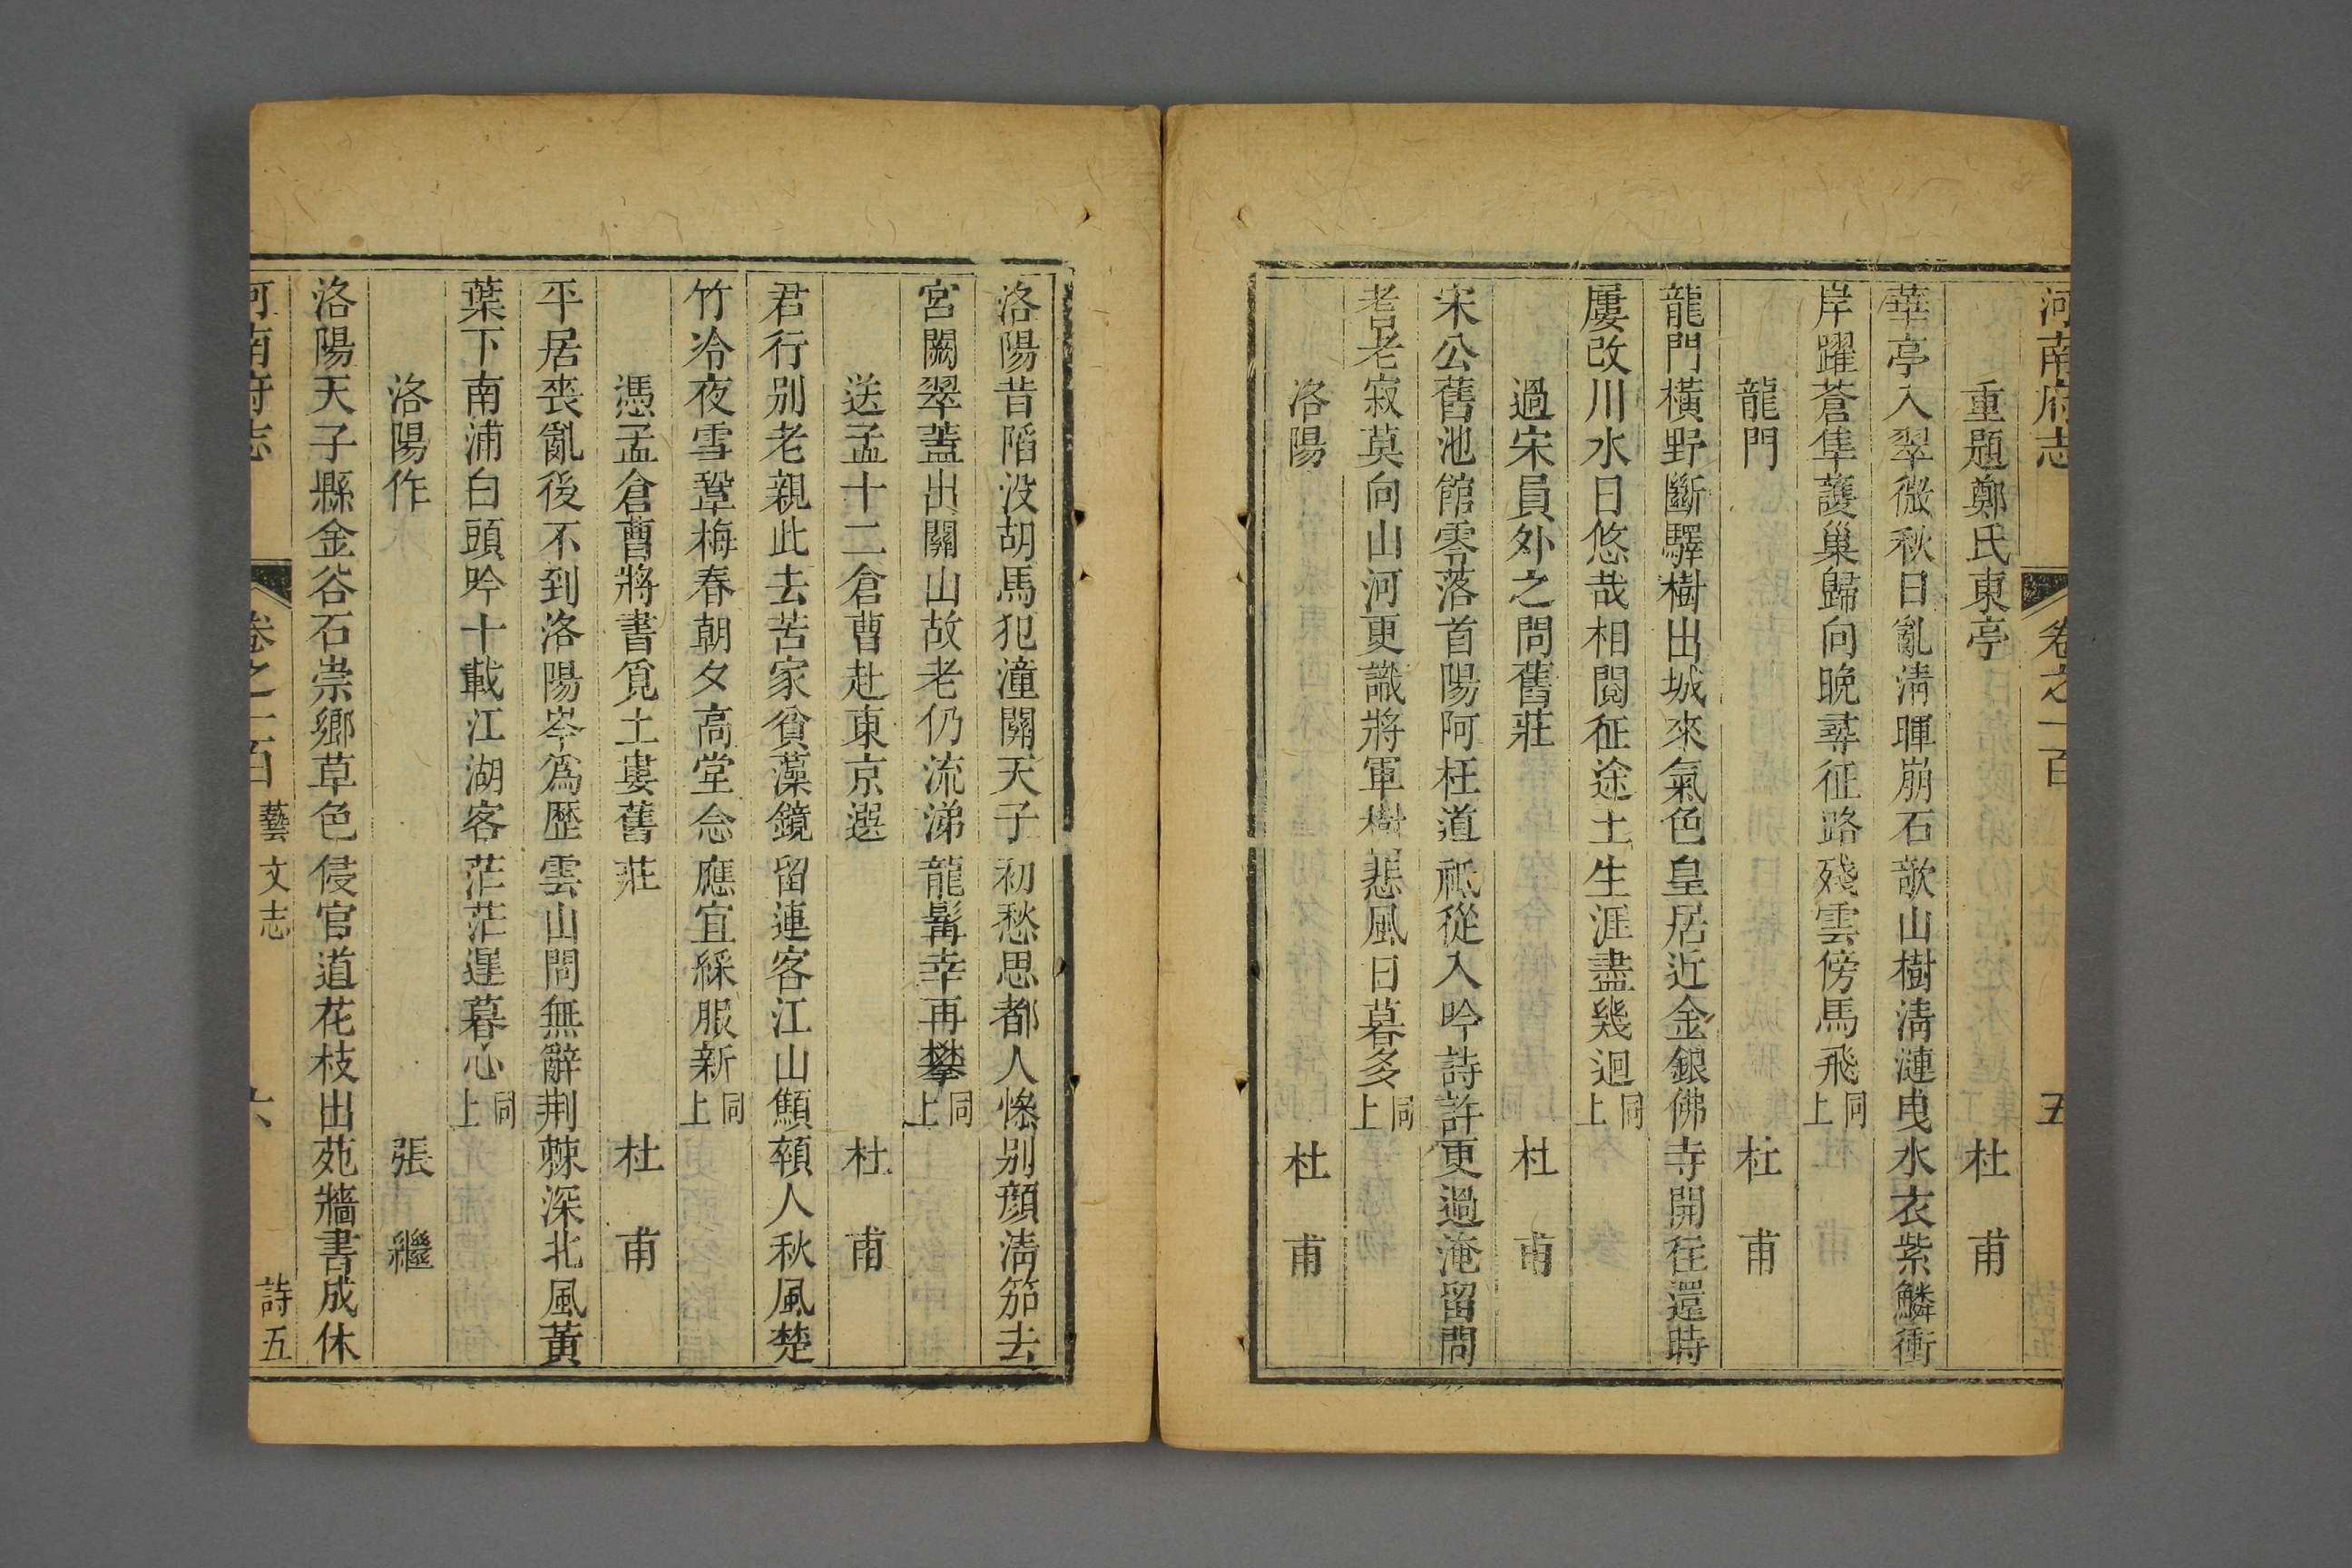 河南府志 卷之一百 五
重題鄭氏東亭 杜甫
華亭入翠微秋日亂淸暉崩石欹山樹淸漣曳水衣紫鱗衝
岸躍蒼隼護巢歸向晚尋征路殘雲傍馬飛同上
龍門 杜甫
龍門橫野斷驛樹出城來氣色皇居近金銀佛寺開往還時
屢改川水日悠哉相閱征途上生涯盡幾迴同上
過宋員外之問舊莊 杜甫
宋公舊池館零落首陽阿枉道祇從入吟詩許更過淹留問
耆老寂莫向山河更識將軍樹悲風日暮多同上
洛陽 杜甫
洛陽昔陷没胡馬犯潼關天子初愁思都人慘别顏淸笳去
宮闕翠蓋出關山故老仍流涕龍髯幸再攀同上
送孟十二倉曹赴東京選 杜甫
君行别老親此去苦家貧藻鏡留連客江山顦顇人秋風楚
竹冷夜雪鞏梅春朝夕高堂念應宜綵服新同上
憑孟倉曹將書覓土婁舊莊 杜甫
平居喪亂後不到洛陽岑爲歷雲山問無辭荆棘深北風黃
葉下南浦白頭吟十載江湖客茫茫遲暮心同上
洛陽作 張繼
洛陽天子縣金谷石崇鄉草色侵官道花枝出苑牆書成休
河南府志 卷之一百 藝文志 六 詩五